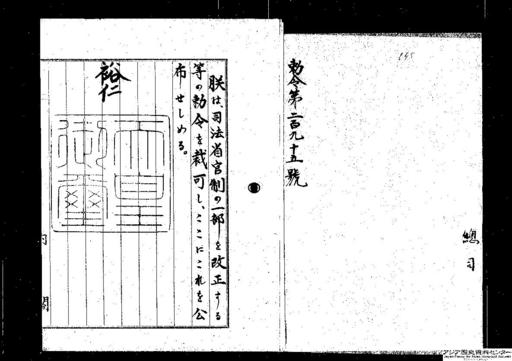 勅令第二百九十五號
總
司
朕は、司法省官制の一部を改正する
等の勅令を裁可し、ここにこれを公
布せしめる。
裕仁
天皇
御璽
内
閣
アジア歴史資料センター